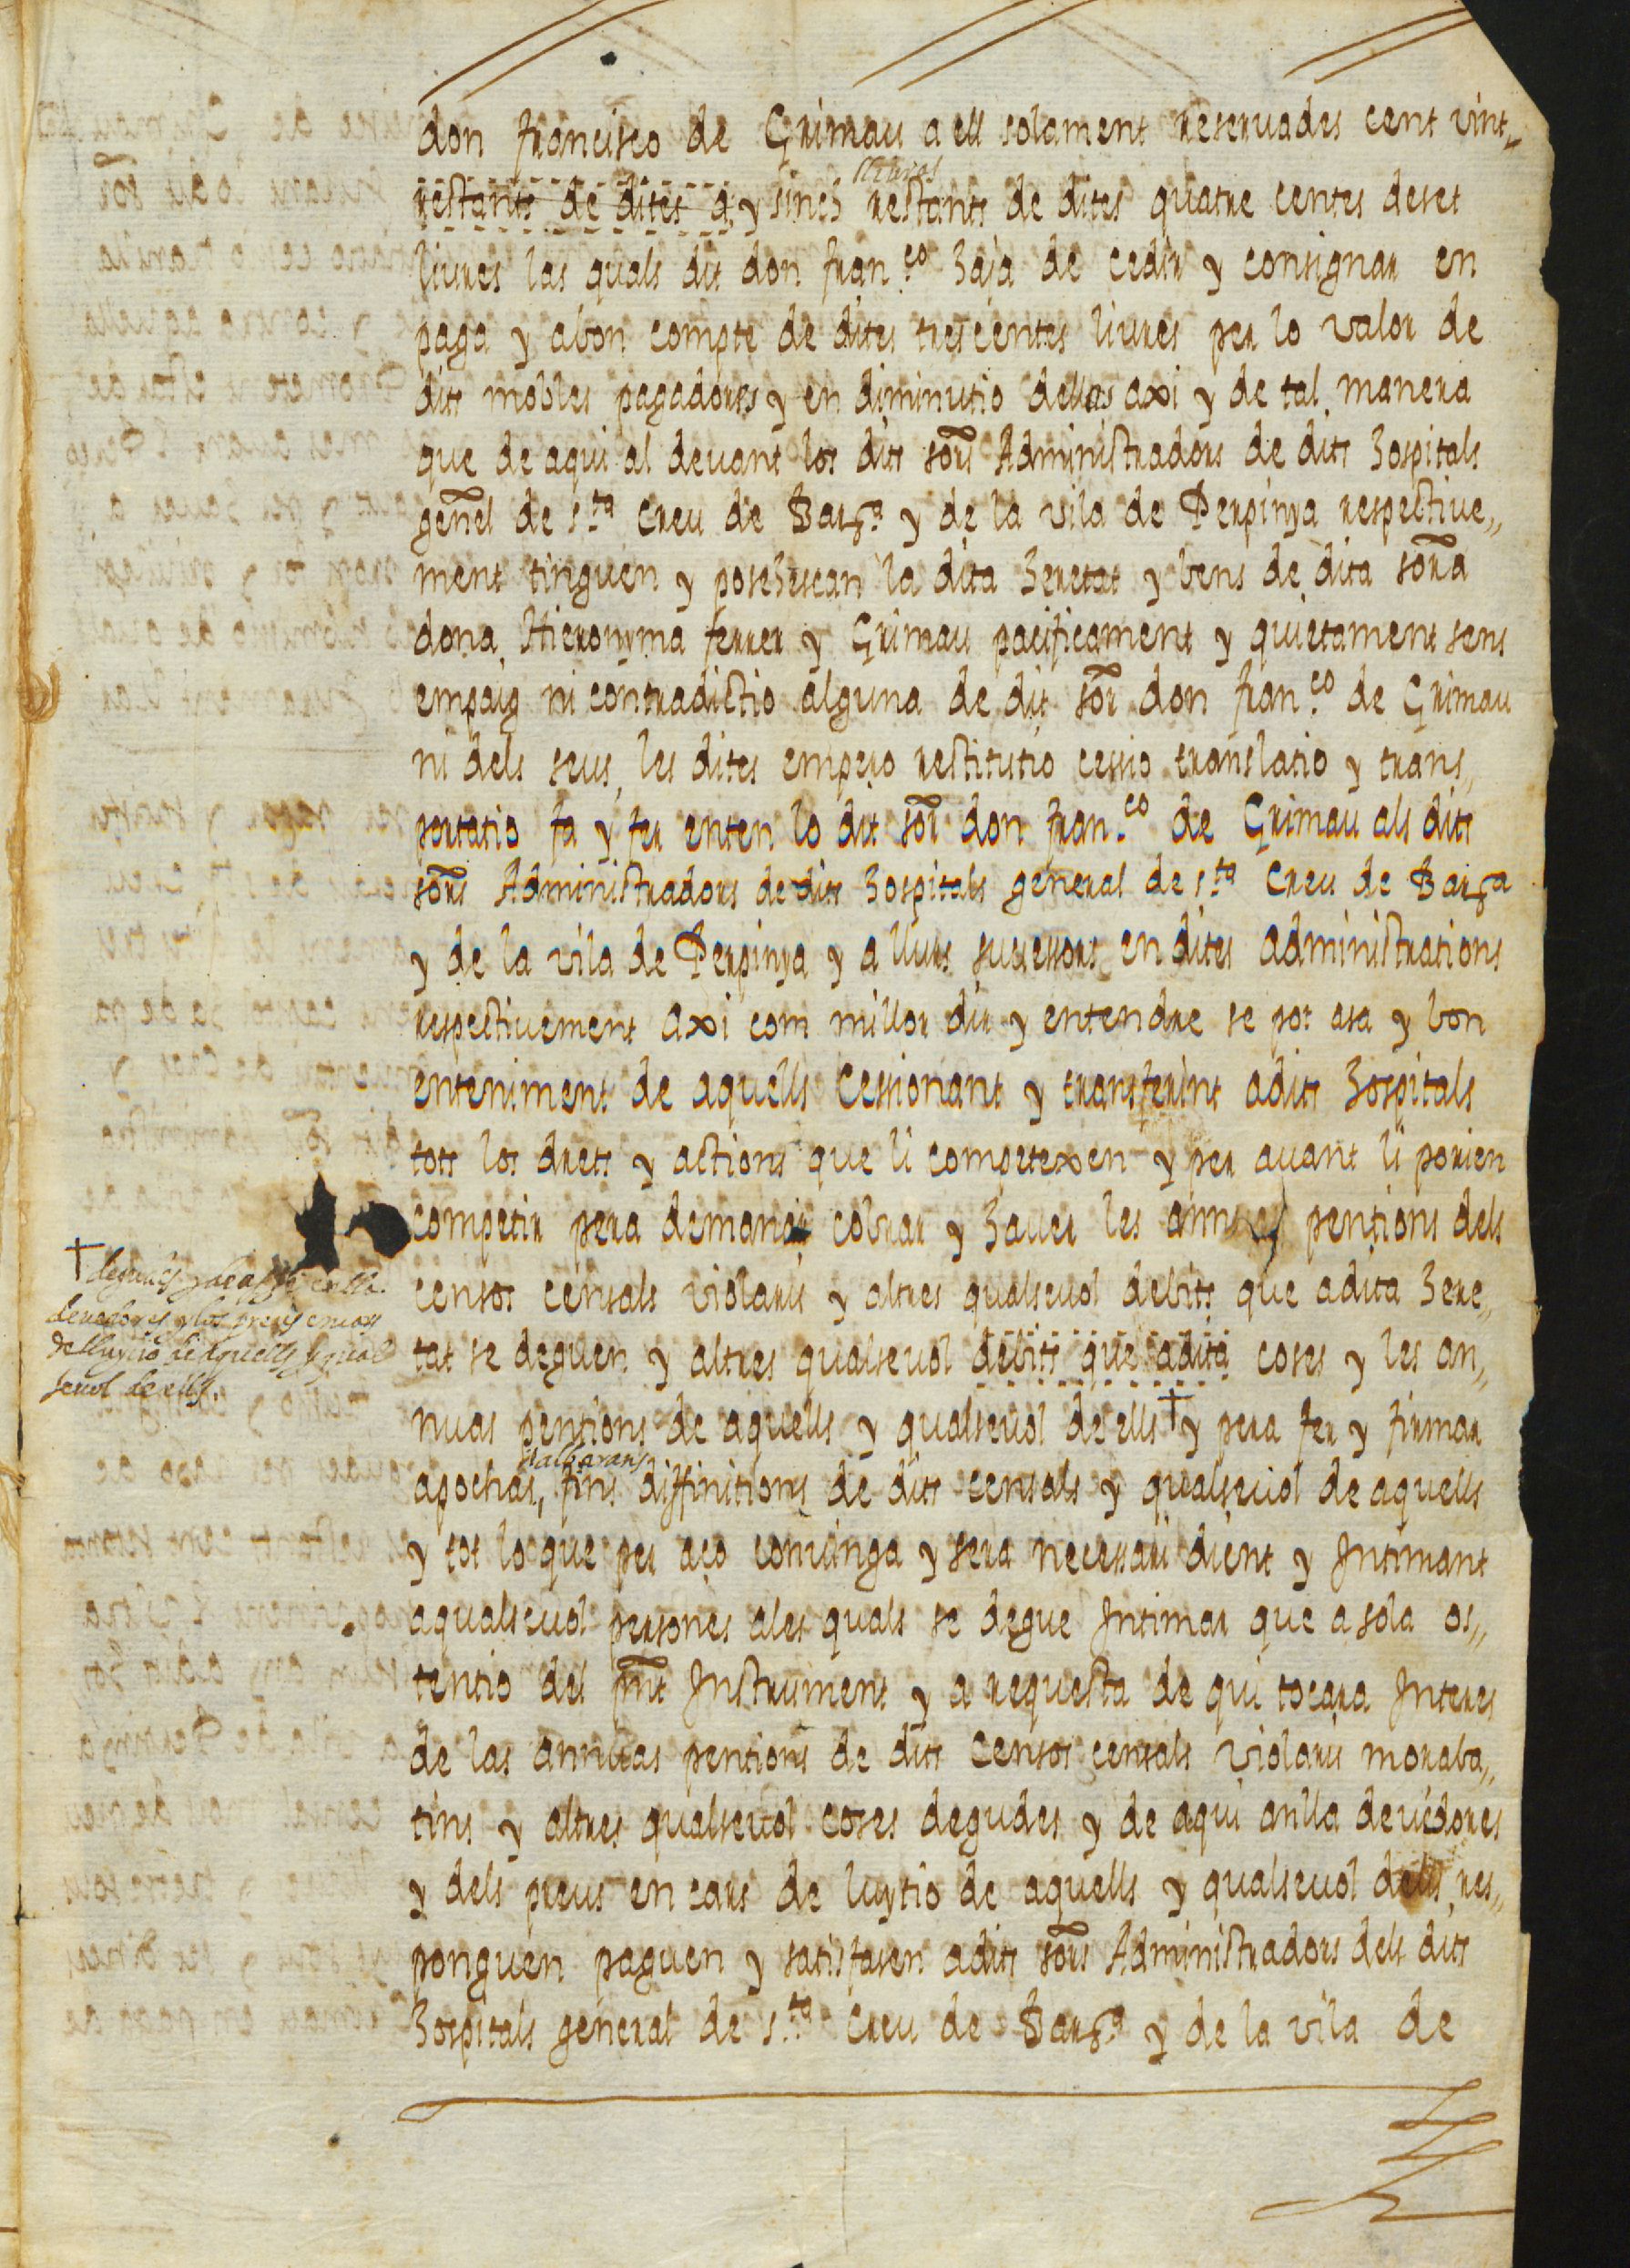 don francisco de Grimau a ell solament reseruades cent vint„
lliures
restants de dites q y sinch restants de dites quatre centes deset
liures las quals dit don fran.co haja de cedir y consignar en
paga y abon compte de dites trescentes liures per lo valor de
dits mobles pagadores y en diminutio dellas axi y de tal manera
que de aqui al deuant los dits sors Administradors de dits hospitals
genel de s.ta Creu de Barña y de la vila de Perpinya respectiue„
ment tinguen y posehescan la dita heretat y bens de dita sora
dona Hieronyma ferrer y Grimau pacificament y quietament sens
empaig ni contradictio alguna de dit sor don fran.co de Grimau
ni dels seus, les dites empero restitutio cessio translatio y trans„
portatio fa y fer enten lo dit sor don fran.co de Grimau als dits
sors Administradors de dits hospitals general de s.ta Creu de Barña
y de la vila de Perpinya y a llurs successors en dites administrations
respectiuement axi com millor dir y entendre se pot asa y bon
enteniment de aquells Cessionant y transferint a dits hospitals
tots los drets y actions que li competexen y per auant li porien
competir pera demanar cobrar y hauer les annuas pentions dels
censos censals violaris y altres qualseuol debits que adita here„
tat se deguen y altres qualseuol debits que adita coses y les an„
nuas pentions de aquells y qualseuol de ells † y pera fer y firmar
† degudes y de aqui en lla
deuedores y los preus en cars
de lluytio de aquells y qual
seuol de ells.
y albarans
apochas, fins diffinitions de dits censals y qualseuol de aquells
y tot lo que per aço conuinga y sera necessari dient y Intimant
aqualseuol persones ales quals se degue Intimar que a sola os„
tentio del pnt Instrument y a requesta de qui tocara Interes
de las annuas pentions de dits Censos censals violaris moraba„
tins y altres qualseuol coses degudes y de aqui anlla deuedores
y dels preus en cars de luytio de aquells y qualseuol dells res„
ponguen paguen y satisfasen adits sors Administradors dels dits
hospitals general de s.ta Creu de Barña y de la vila de